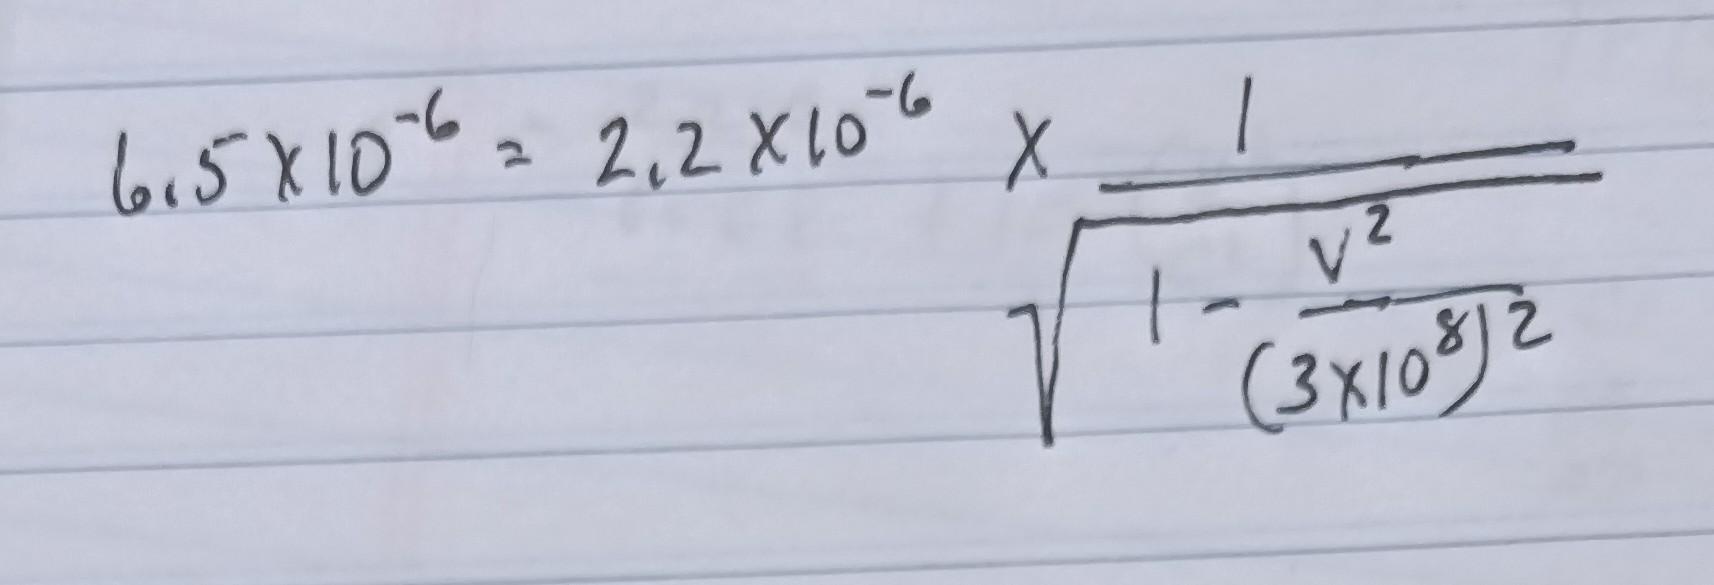 6.5 × 10⁻⁶ = 2.2 × 10⁻⁶ × 1 / √(1 - v² / (3×10⁸)²)